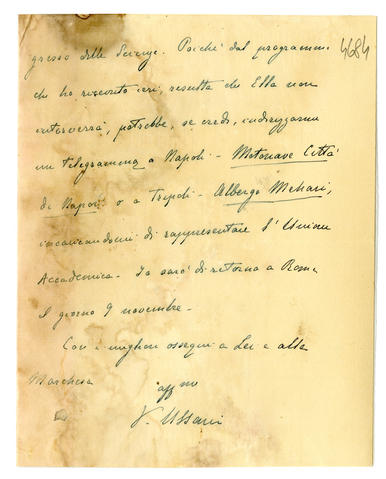 4684
gresso delle Scienze. Poiché dal programma
che ho ricevuto ieri, resulta che Ella non
interverrà, potrebbe, se crede, indirizzarmi
un telegramma a Napoli - Motonave Città
di Napoli o a Tripoli - Albergo Mehari,
incaricandomi di rappresentare l'Unione
Accademica. Io sarò di ritorno a Roma
il giorno 9 novembre.
Con i migliori ossequi a Lei e alla
Marchesa
aff mo
V. Ussani